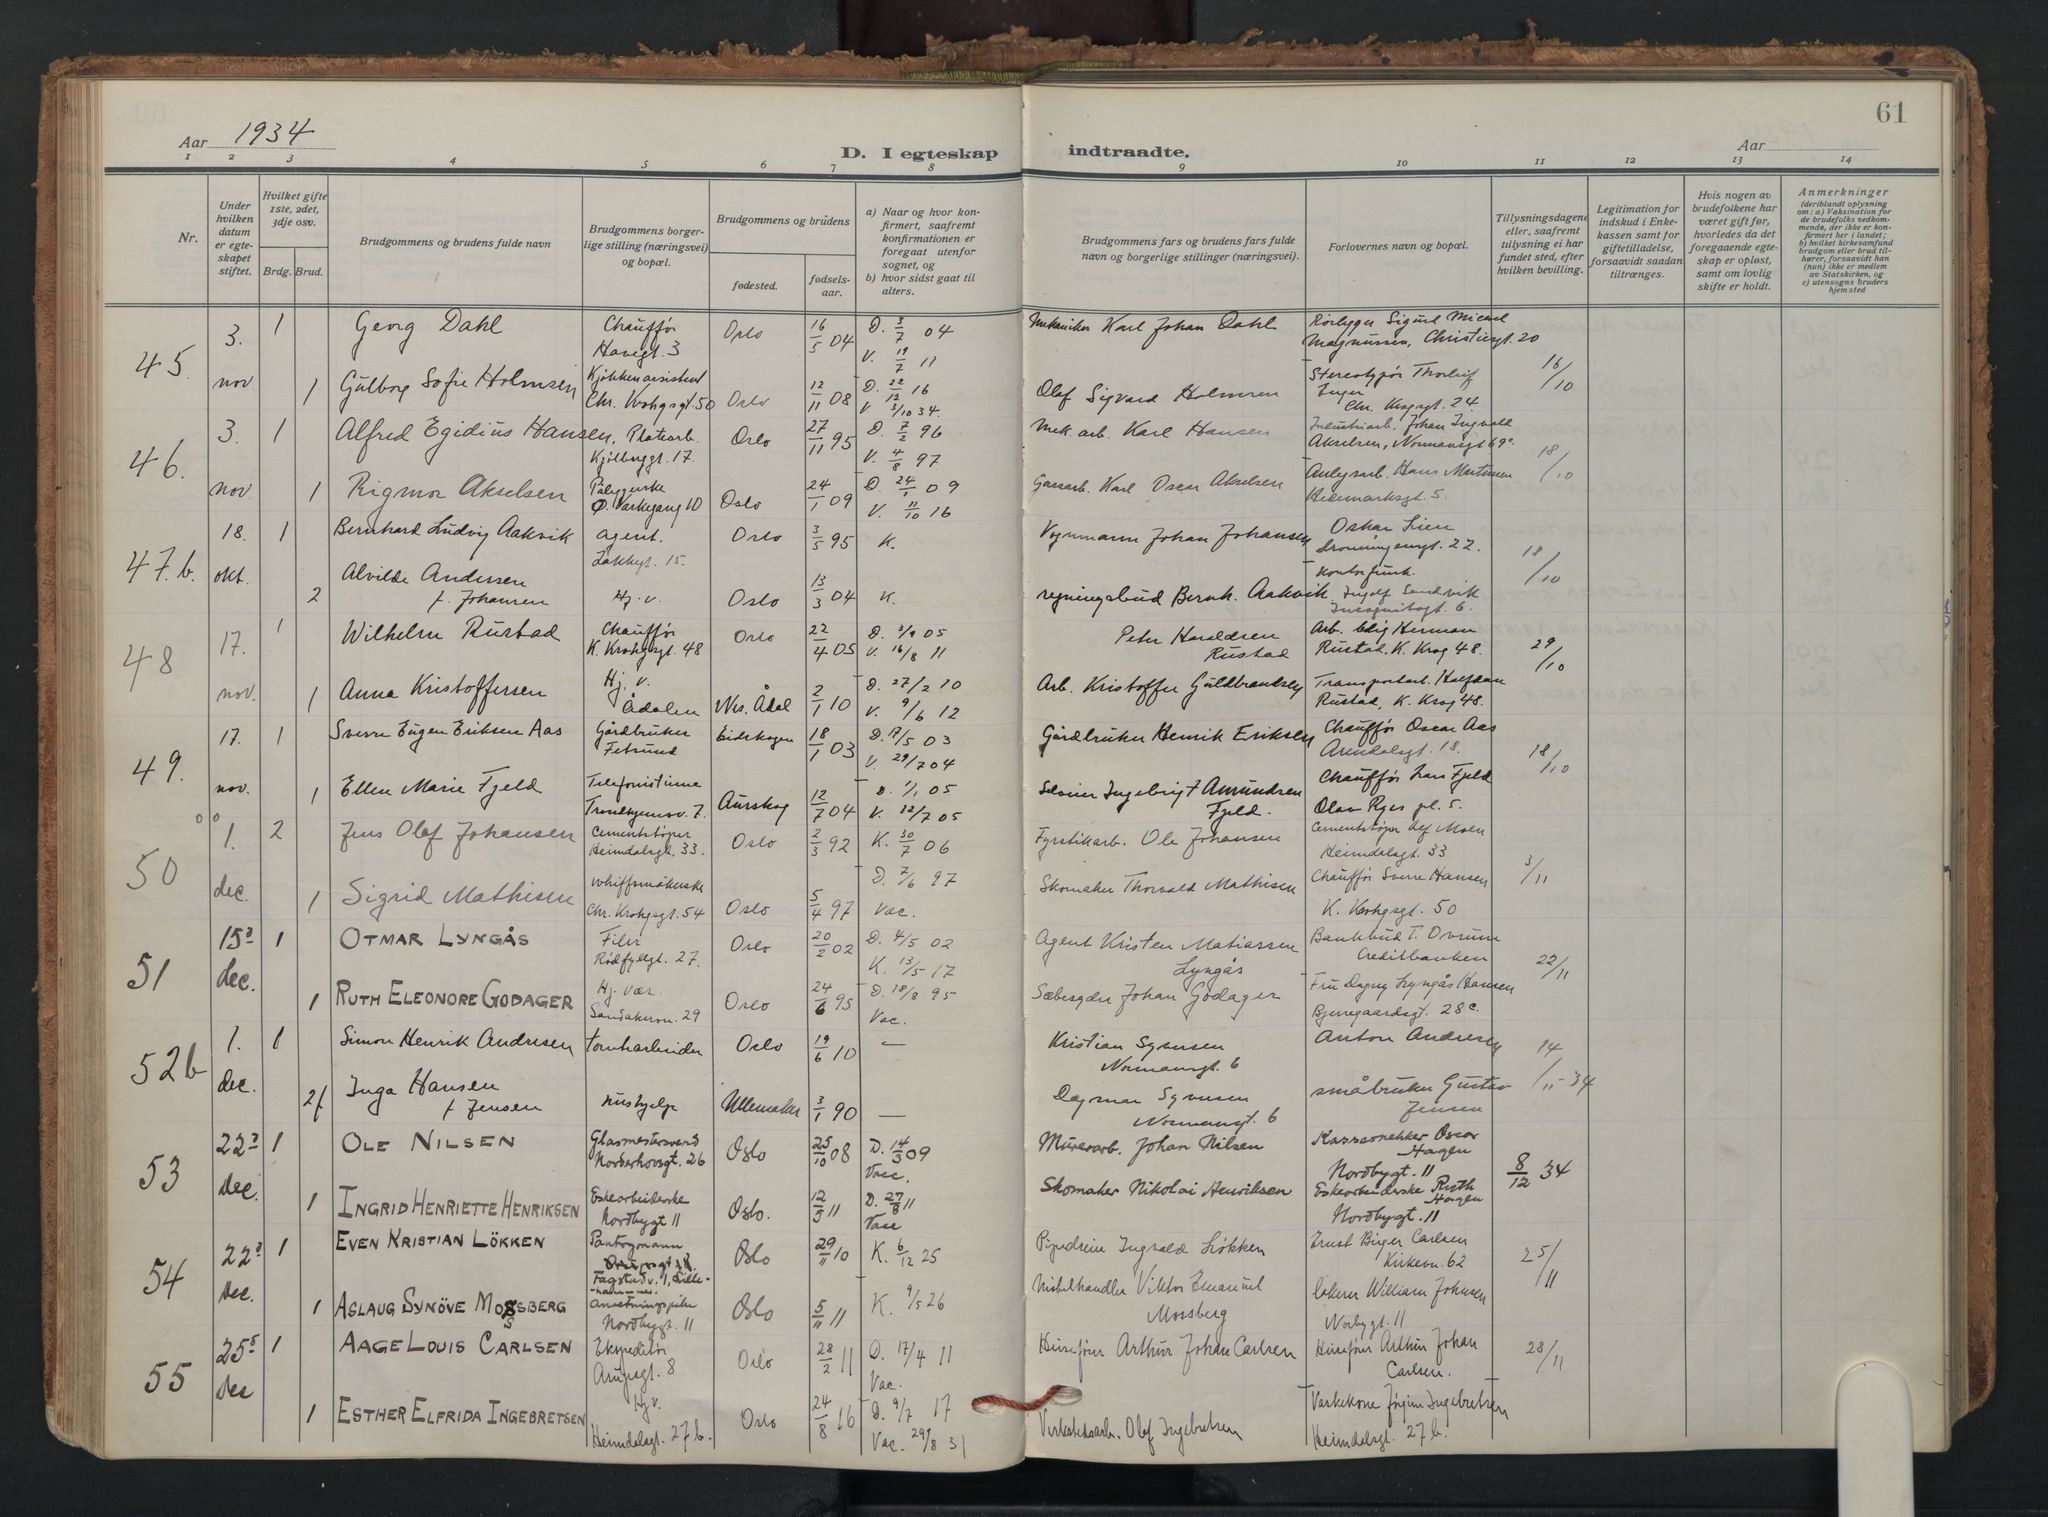 61
Aar 1934
D. I egteskap indtraadte.
Aar
1 2 3 4 5 6 7 8 9 10 11 12 13 14
Nr.
Under hvilken datum er egteskapet stiftet.
Hvilket gifte 1ste, 2det, 3dje osv.
Brdg. Brud.
Brudgommens og brudens fulde navn
Brudgommens borgerlige stilling (næringsvei) og bopæl.
Brudgommens og brudens
fødested.
fødselsaar.
a) Naar og hvor konfirmert, saafremt konfirmationen er foregaat utenfor sognet, og
b) hvor sidst gaat til alters.
Brudgommens fars og brudens fars fulde navn og borgerlige stillinger (næringsvei).
Forlovernes navn og bopæl.
Tillysningsdagene eller, saafremt tillysning ei har fundet sted, efter hvilken bevilling.
Legitimation for indskud i Enkekassen samt for giftetilladelse, forsaavidt saadan tiltrænges.
Hvis nogen av brudefolkene har været gift før, hvorledes da det foregaaende egteskap er opløst, samt om lovlig skifte er holdt.
Anmerkninger (deriblandt oplysning om: a) Vaksination for de brudefolks vedkommende, der ikke er konfirmert her i landet; b) hvilket kirkesamfund brudgom eller brud tilhører, forsaavidt han (hun) ikke er medlem av Statskirken, og c) utensogns bruders hjemsted
45. 3. nov 1 Georg Dahl Chauffør Havegt. 3 Oslo 16/5 04 D. 3/7 04 V. 19/7 11 Mekaniker Karl Johan Dahl Rørlegger Sigurd Magnussen, Christiesgt. 20 16/10
1 Gulborg Sofie Holmsen Kjøkkenassistent Chr. Krohgsgt. 50 Oslo 12/11 08 D. 22/12 16 V. 3/10 34. Olaf Sigvard Holmsen Stereotypør Thorleif Chr. Krogsgt. 24.
46. 3. nov. 1 Alfred Egidius Hansen, Platearb. Kjølberggt. 17. Oslo 27/11 95 D. 7/2 96 V. 4/8 97 Mek. arb. Karl Hansen Industriarb. Johan Ingvald Akselsen, Normannsgt 69c 18/10
1 Rigmor Akselsen Påleggerske Ø. Varkegang 10 Oslo 24/1 09 D. 24/1 09 V. 11/10 16 Gassarb. Karl Oscar Akselsen Anlegsarb. Hans Hedemarksgt. 5.
47.b. 18. okt. 1 Bernhard Ludvig Aakvik agent. Lakkegt. 15. Oslo 3/5 95 K. Vognmann Johan Johansen Oskar Lien Dronningensgt. 22. 18/10
2 Alvilde Andersen f. Johansen Hj. v. Oslo 13/3 04 K. regningsbud Bernh. Aakvik kontorfunk. Ingolf Sandvik
48 17. nov. 1 Wilhelm Rustad Chauffør K. Krohgsgt. 48 Oslo 22/4 05 D. 3/9 05 V. 16/8 11 Peter Haraldsen Rustad Arb. Edig Herman Rustad, K. Krog 48. 29/10
1 Anna Kristoffersen Hj. v. Ådalen Nes. Ådal 2/1 10 D. 27/2 10 V. 9/6 12 Arb. Kristoffer Guldbrandsen Transportarb. Halfdan Rustad, K. Krog 48.
49. 17. nov. 1 Sverre Eugen Eriksen Aas Gårdbruker Fetsund Eidskogen 18/1 03 D. 17/5 03 V. 29/7 04 Gårdbruker Henrik Eriksen Chauffør Oscar Aas Arendalsgt. 18. 18/10
1 Ellen Marie Fjeld Telefonistinne Trondhjemsv. 7. Aurskog 12/7 04 D. 1/1 05 V. 12/7 05 Selveier Ingebrigt Amundsen Fjeld. Chauffør Lars Fjeld Olav Ryes pl. 5.
50 1. dec. 2 Jens Olaf Johansen Cementstøper Heimdalsgt. 33. Oslo 2/3 92 K. 30/7 06 Fyrstikarb. Ole Johansen Cementstøper Alf Moen Heimdalsgt. 33 3/11
1 Sigrid Mathisen Chr. Krohgsgt. 54 Oslo 5/4 97 D. 7/6 97 Vac. Skomaker Thorvald Mathisen Chauffør Sverre Hansen K. Krohgsgt. 50
51 15 dec. 1 Otmar Lyngås Filer Rødfyllgt. 27. Oslo 20/2 02 D. 4/5 02 K. 13/5 17 Agent Kristen Matiassen Lyngås Bankbud T. Ovrum Creditbanken 22/11
1 Ruth Eleonore Godager Hj. vær. Sandakervn. 29 Oslo 24/6 95 D. 18/8 95 Vac. Johan Godager Fru Dagny Lyngås Hansen Bjerregaardsgt. 28c.
52b 1. dec. 1 Simon Henrik Andresen tomtarbeider Oslo 19/6 10 — Kristian Syversen Normannsgt. 6 Anton Andresen 14/11-34
2f Inga Hansen f. Jensen hushjelp Ullensaker 3/1 90 — Dagmar Syversen Normannsgt. 6 småbruker Gustav Jensen
53 22 dec. 1 Ole Nilsen Glasmestersvend Norderhovsgt. 26 Oslo 25/10 08 D. 14/3 09 Vacc. Murerarb. Johan Nilsen Kassasnekker Oscar Hagen Nordbygt. 11 8/12 34
1 Ingrid Henriette Henriksen Eskearbeiderske Nordbygt 11 Oslo. 12/5 11 D. 27/8 11 Vacc Skomaker Nikolai Henriksen Eskearbeiderske Ruth Hagen Nordbygt. 11
54 22 dec. 1 Even Kristian Lökken Fagstadv. 1, Lillehammer. Oslo 29/11 10 K. 6/12 25 Ingvald Løkken Ernst Birger Carlsen Kirkevn. 62 25/11
1 Aslaug Synöve Mossberg Nordbygt. 11 Oslo 5/11 11 K. 9/5 26 Møbelhandler Viktor Emanuel Mossberg William Johnsen Norbygt. 11
55 25 des 1 Aage Louis Carlsen Ekspeditør Arupsgt. 8 Oslo 28/2 11 D. 17/4 11 Vac. Arthur Johan Carlsen Arthur Johan Carlsen. 28/11
1 Esther Elfrida Ingebretsen Hj. v. Heimdalsgt. 27 b. Oslo 24/8 16 D. 9/7 17 Vac. 29/8 31 Verkstedsarb. Olaf Ingebretsen Vaskekone Jørgine Ingebretsen Heimdalsgt. 27 b.